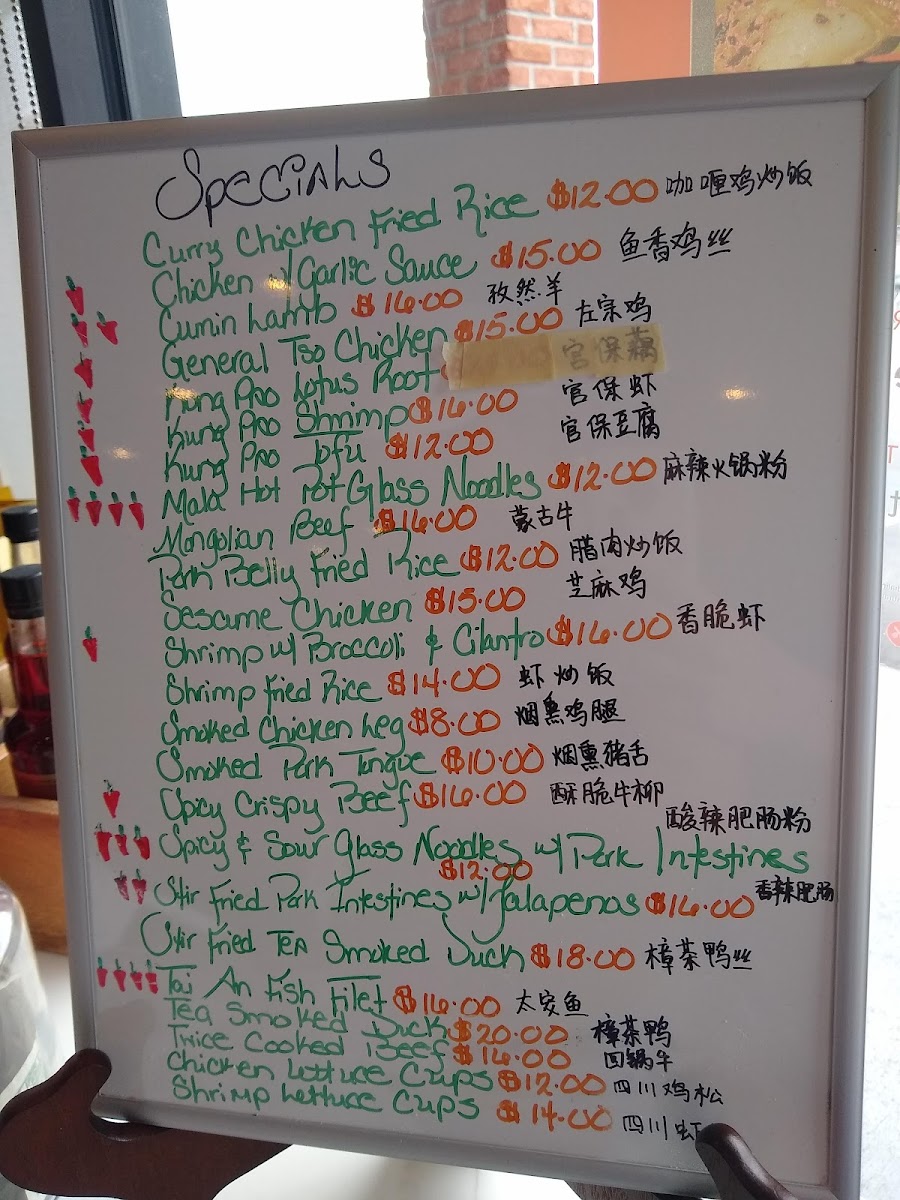 Specials
Curry Chicken Fried Rice $12.00 咖喱鸡炒饭
Chicken w/ Garlic Sauce $15.00 鱼香鸡丝
Cumin Lamb $16.00 孜然羊
General Tso Chicken $15.00 左宗鸡
Kung Pao Lotus Root 宫保藕
Kung Pao Shrimp $16.00 宫保虾
Kung Pao Tofu $12.00 宫保豆腐
Mala Hot Pot Glass Noodles $12.00 麻辣火锅粉
Mongolian Beef $16.00 蒙古牛
Pork Belly Fried Rice $12.00 腊肉炒饭
Sesame Chicken $15.00 芝麻鸡
Shrimp w/ Broccoli & Cilantro $16.00 香脆虾
Shrimp Fried Rice $14.00 虾炒饭
Smoked Chicken Leg $8.00 烟熏鸡腿
Smoked Pork Tongue $10.00 烟熏猪舌
Spicy Crispy Beef $16.00 酥脆牛柳
Spicy & Sour Glass Noodles w/ Pork Intestines $12.00 酸辣肥肠粉
Stir Fried Pork Intestines w/ Jalapenos $16.00 香辣肥肠
Stir Fried Tea Smoked Duck $18.00 樟茶鸭丝
Tai An Fish Filet $16.00 太安鱼
Tea Smoked Duck $20.00 樟茶鸭
Twice Cooked Beef $16.00 回锅牛
Chicken Lettuce Cups $12.00 四川鸡松
Shrimp Lettuce Cups $14.00 四川虾